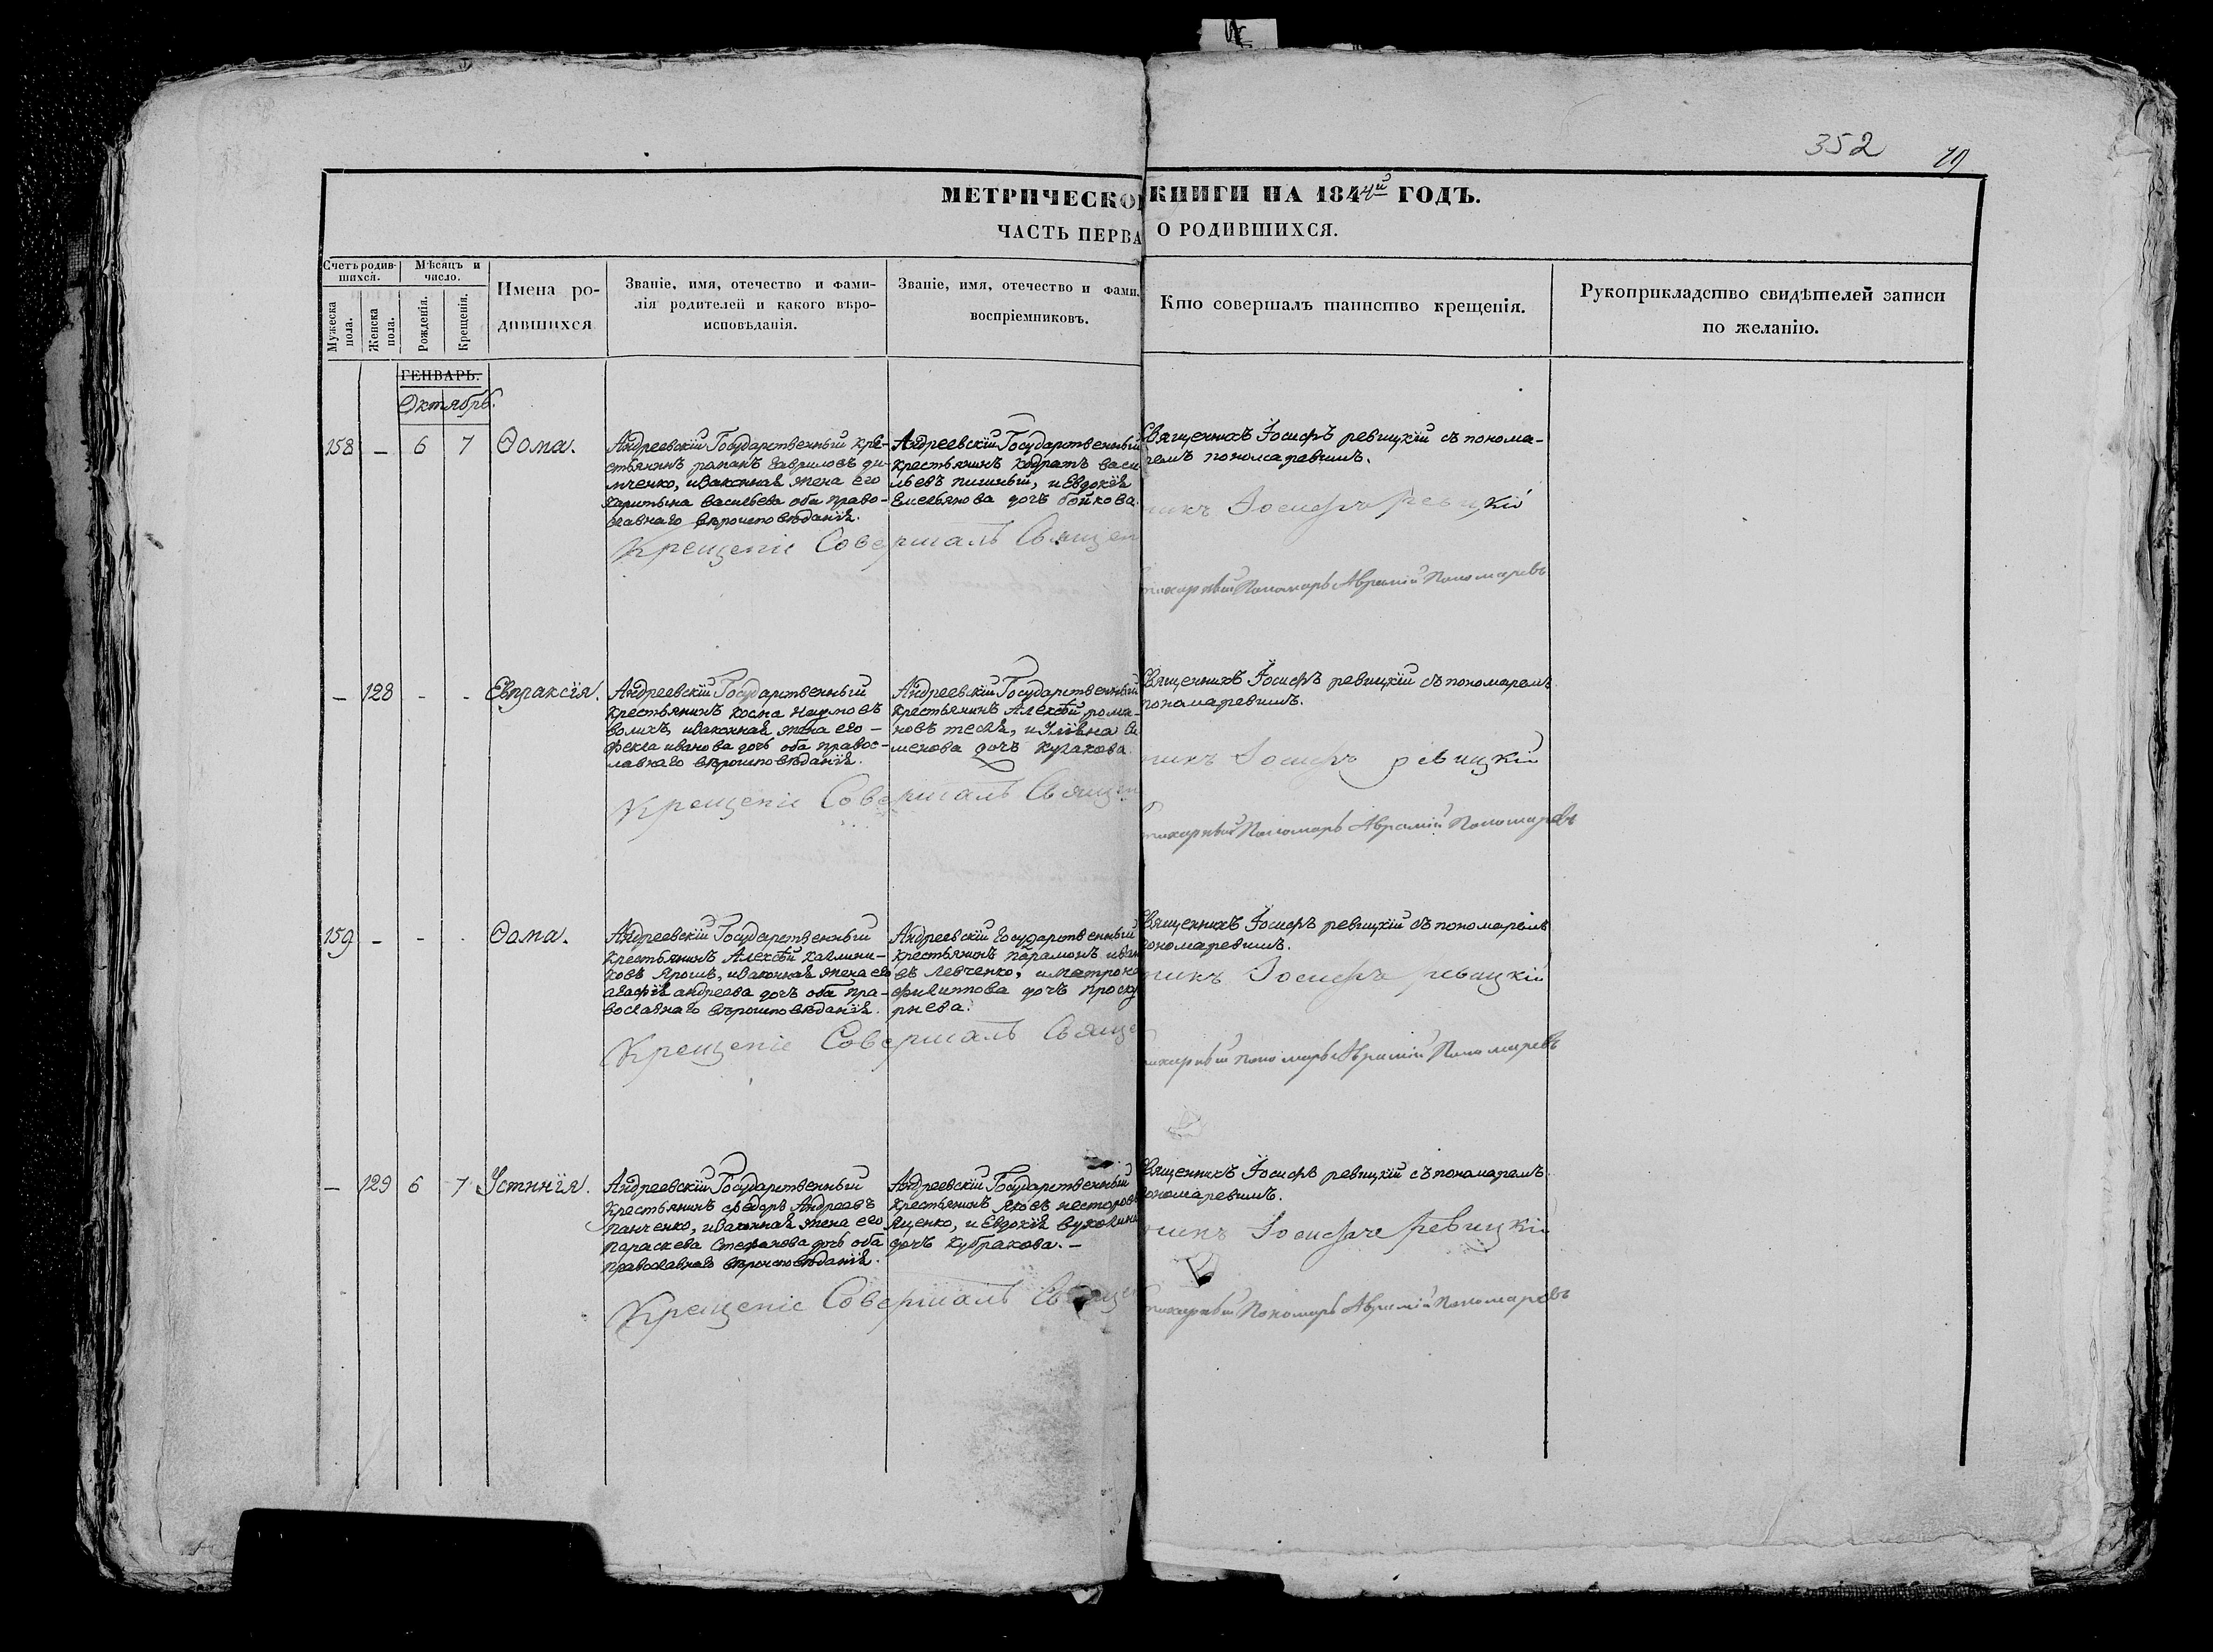 352 79
МЕТРИЧЕСКО КНИГИ НА 1844й ГОДЪ.
ЧАСТЬ ПЕРВА О РОДИВШИХСЯ.
Счетъ родив-
шихся.
Мужеска
пола.
Женска
пола.
Мѣсяцъ и
число.
Рожденія.
Крещенія.
Имена ро-
дившихся
Званіе, имя, отечество и фами-
лія родителей и какого вѣро-
исповѣданія.
Званіе, имя, отечество и фами
воспріемниковъ.
Кто совершалъ таинство крещенія.
Рукоприкладство свидѣтелей записи
по желанію.
ГЕНВАРЬ.
Октябрь.
158 – 6 7 Ѳома.
Андреевскій Государственный кре-
стьянинъ романъ Гавриловъ ди-
мченко, изаконная жена его
харитына Васильева оба право-
славнаго вѣроисповѣданія.
Андреевскій Государственный
крестьянинъ кодратъ васи
льевъ пишный, и Евдокія
Емельянова дочь бойкова.
Священникъ Іосифъ ревицкій съ понома-
ремъ пономаревимъ.
Крещеніе Совершалъ Священ
никъ Іосифъ ревицкій
стихарный Пономарь Аврамій Пономаревъ
– 128 - - Евпраксія.
Андреевскій Государственный
крестьянинъ косма Наумовъ
волихъ, изаконная жена его –
Фекла иванова дочь оба правос-
лавнаго вѣроисповѣданія.
Андреевскій Государственный
крестьянинъ Алексѣй рома-
новъ тесля, и Уліяна си
менова дочь кулакова.
Священникъ Іосифъ ревицкій съ пономаремъ
пономаревимъ.
Крещеніе Совершалъ Священ
никъ Іосифъ ревицкій
стихарный Пономарь Аврамій Пономаревъ
159 - - . Ѳома.
Андреевскій Государственный
крестьянинъ Алексѣй калини-
ковъ Ярошъ, изаконная жена его
агафія андреева дочь оба пра-
вославнаго вѣроисповѣданія.
Андреевскій государственный
крестьянинъ парамонъ иван
въ левченко, и матрона
филиппова дочь проску
рнева.
Священникъ Іосифъ ревицкій съ пономаремъ
пономаревимъ.
Крещеніе Совершалъ Свяще
никъ Іосифъ ревицкій
стихарный пономарь Аврамій Пономаревъ
– 129 6 7 Устинія.
Андреевскій Государственный
крестьянинъ федоръ Андреевъ
панченко, изаконная жена его
параскева Стефанова дочь оба
православнаго вѣроисповѣданія.
Андреевскій Государственный
крестьянинъ яковъ несторовъ
яценко, и Евдокія вуколина
дочь кубракова. –
Священникъ Іосифъ ревицкій съ пономаремъ
пономаревимъ.
Крещеніе Совершалъ Священ
никъ Іосифъ Ревицкій
стихарный Пономарь Аврамій Пономаревъ